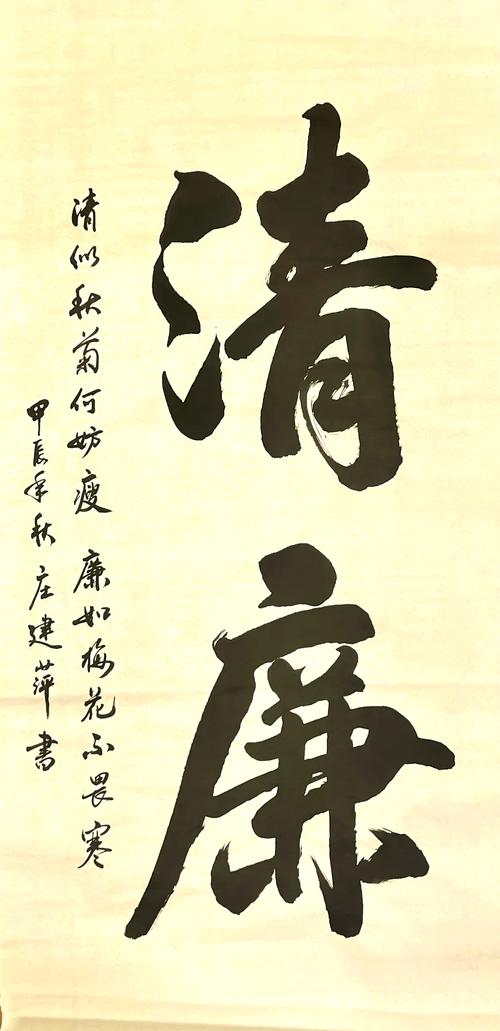 清廉
清似秋菊何妨瘦 廉如梅花不畏寒
甲辰年秋 庄建萍書